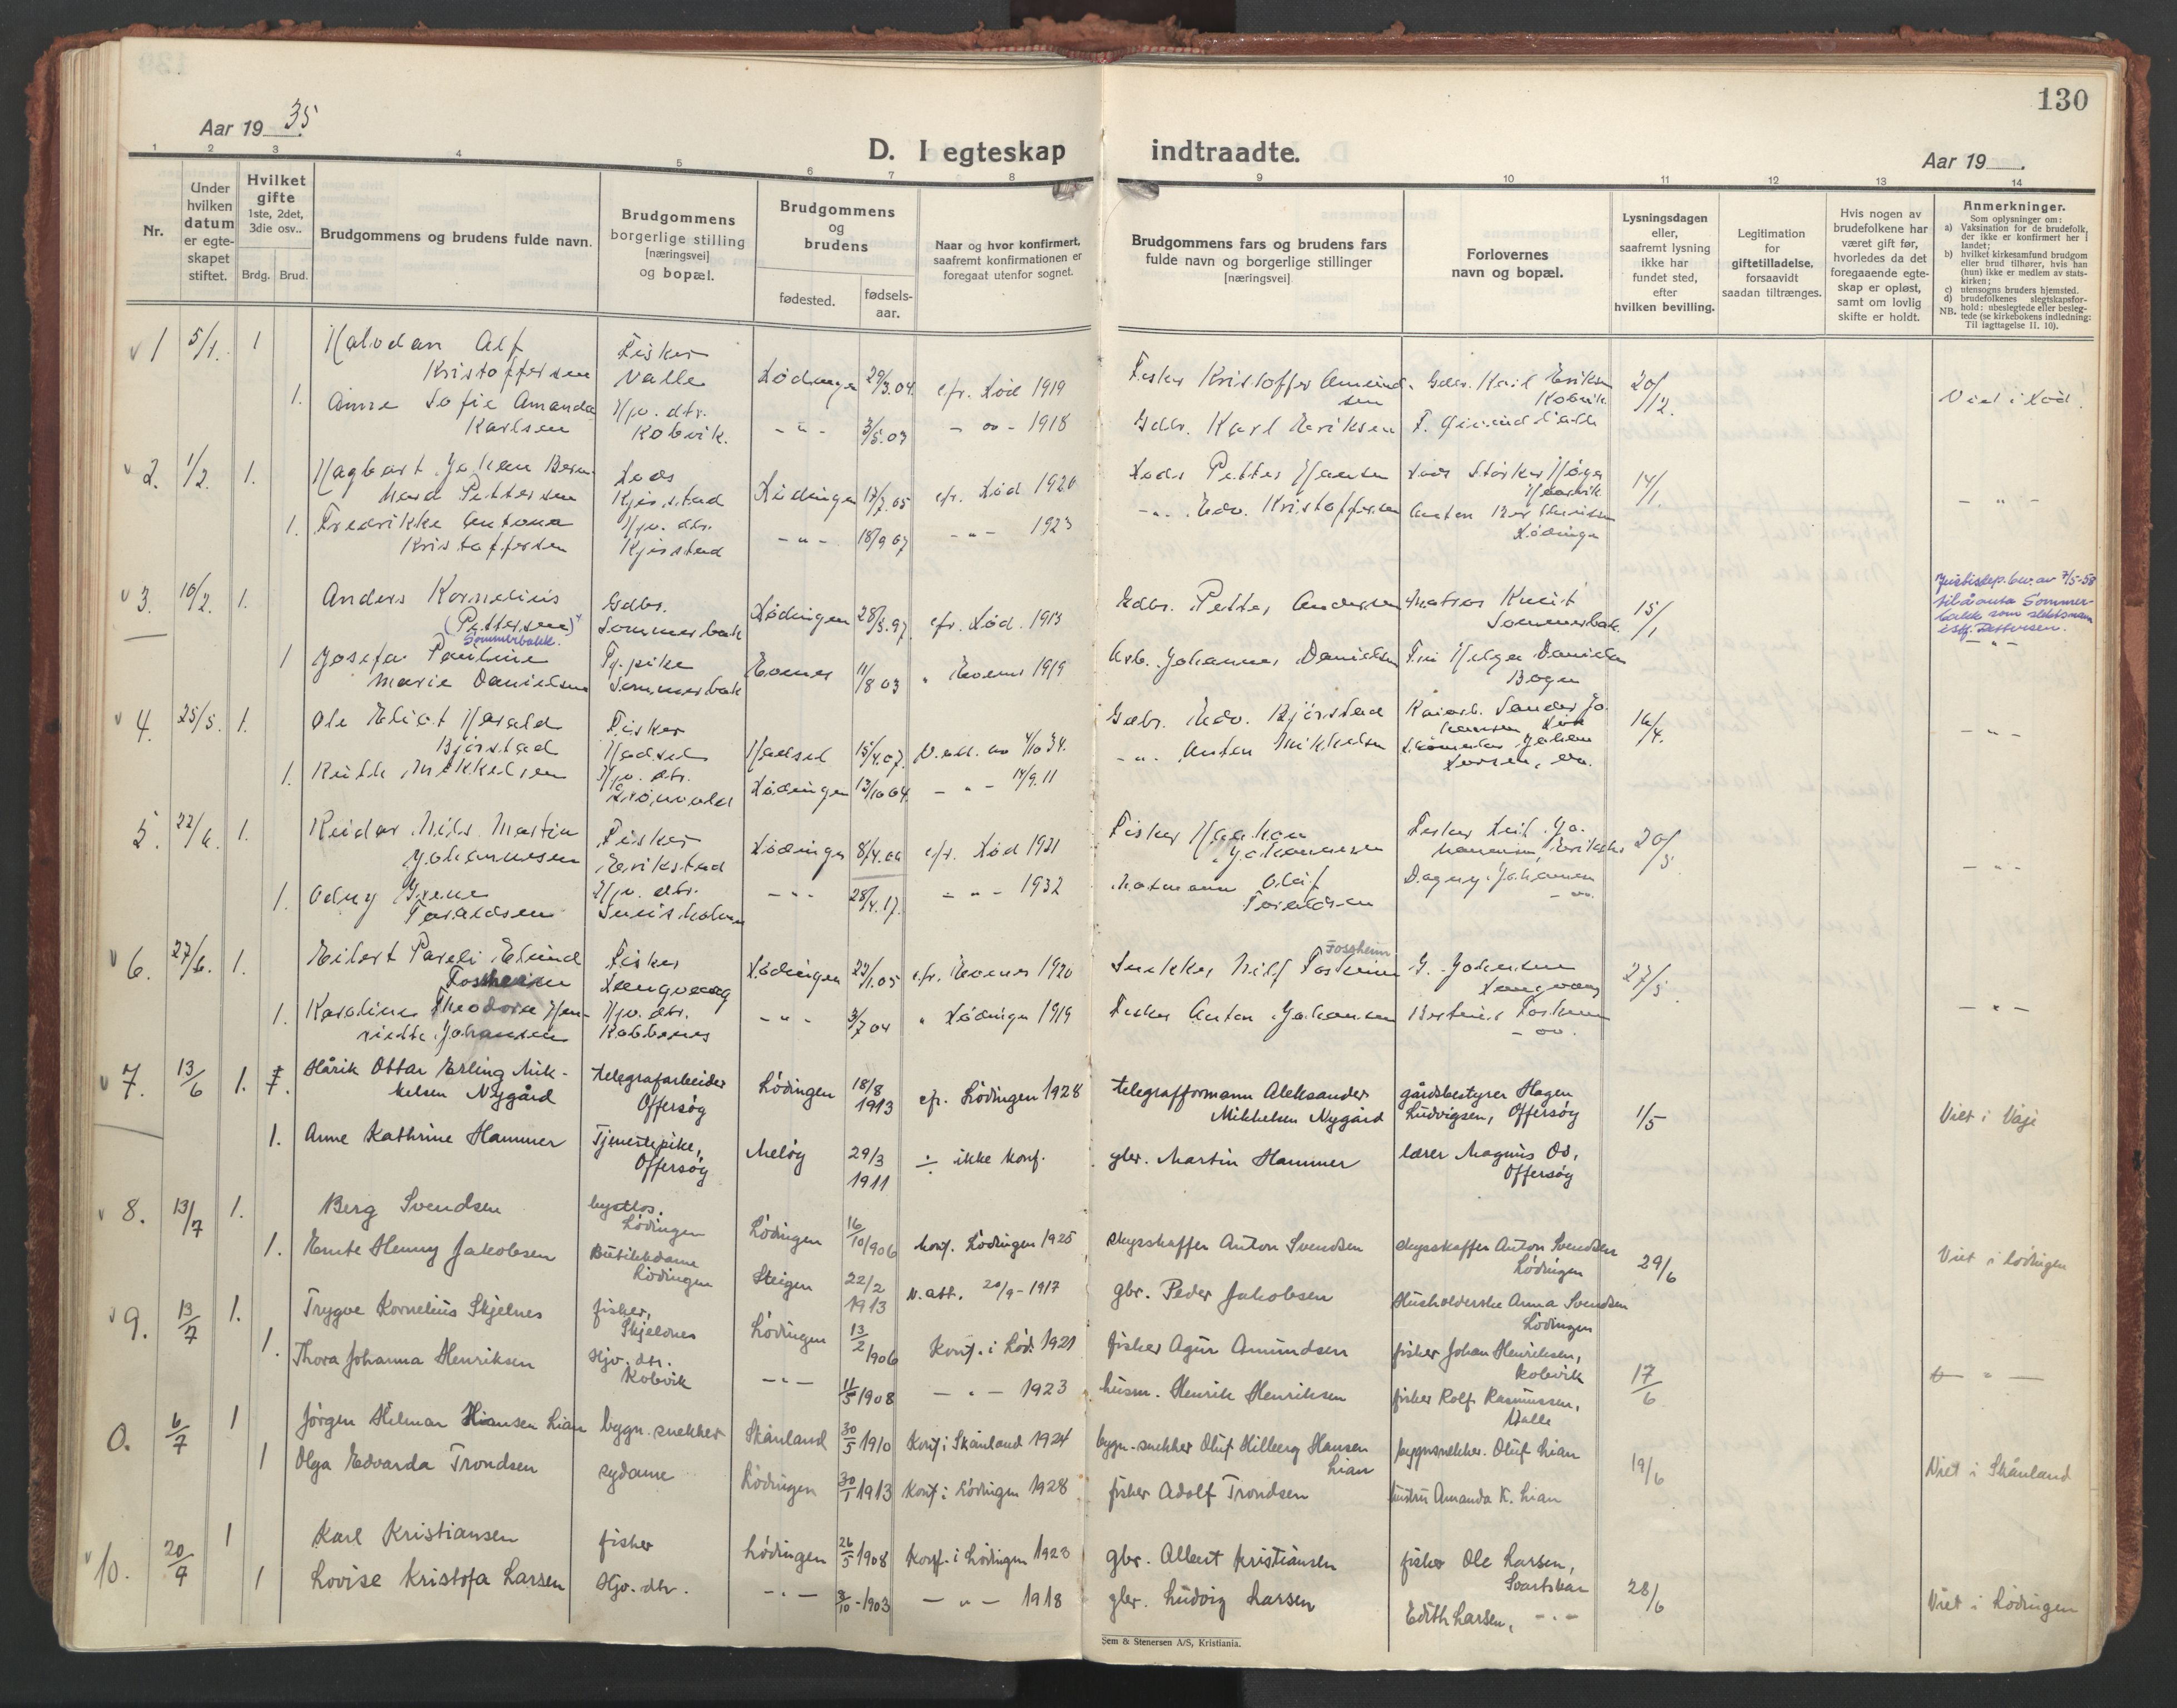 130
Aar 19 35.
D. I egteskap indtraadte.
Aar 19
1 2 3 4 5 6 7 8 9 10 11 12 13 14
Nr.
Under hvilken datum er egte-skapet stiftet.
Hvilket gifte 1ste, 2det, 3die osv..
Brdg. Brud.
Brudgommens og brudens fulde navn.
Brudgommens borgerlige stilling [næringsvei] og bopæl.
Brudgommens og brudens
fødested. fødsels-aar.
Naar og hvor konfirmert, saafremt konfirmationen er foregaat utenfor sognet.
Brudgommens fars og brudens fars fulde navn og borgerlige stillinger [næringsvei]
Forlovernes navn og bopæl.
Lysningsdagen eller, saafremt lysning ikke har fundet sted, efter hvilken bevilling.
Legitimation for giftetilladelse, forsaavidt saadan tiltrænges.
Hvis nogen av brudefolkene har været gift før, hvorledes da det foregaaende egte-skap er opløst, samt om lovlig skifte er holdt.
Anmerkninger.
Som oplysninger om:
a) Vaksination for de brudefolk, der ikke er konfirmert her i landet;
b) hvilket kirkesamfund brudgom eller brud tilhører, hvis han (hun) ikke er medlem av stats-kirken;
c) utensogns bruders hjemsted.
d) brudefolkenes slegtskapsfor-hold: ubeslegtede eller besleg-tede (se kirkebokens indledning: Til iagttagelse II. 10).
NB.
1 5/1. 1 Halvdan Alf Kristoffersen Fisker Valle Lødingen 29/3.04. cfr. Lød 1919 Fisker Kristoffer Amundsen Gdbr. Karl Eriksen Kobvik 20/12. Viet i Lød.
1. Anne Sofie Amanda Karlsen Hjv. dtr. Kobvik. - " - 3/5.03 1918 Gdbr. Karl Eriksen
2. 1/2. 1. Hagbart Johan Bernhard Pettersen Lods Kjerstad Lødingen 17/7.05 cfr. Lød 1920 Lods Petter Hansen 14/1. - " -
1. Fredrikke Antona Kristoffersen Hjv. dtr. Kjerstad - " - 18/9 07 - " - 1923 - " - Edv. Kristoffersen Lødingen
3. 10/2. 1. Anders Kornelius (Pettersen) Sommerbakk. Gdbr. Sommerbak Lødingen 28/3.97. cfr. Lød. 1913 Gdbr. Petter Andersen Matros Knut Sommerbak 15/1
til å anta Sommerbakk som slektsnavn istf. Pettersen. - " -
1 Josefa Pauline Marie Danielsen Tj. pike Sommerbak Evenes 11/8 03 " Evenes 1919 Arb. Johannes Danielsen Bogen
4. 25/5. 1. Ole Eliot Harald Bjørstad Fisker Hadsel Hadsel 15/4.07. N. att. av 4/10 34. Gdbr. Edv. Bjørstad 16/4. - " -
1. Ruth Mikkelsen Hjv. dtr. Lødingen 13/10 04. - " - 14/9.11 - " - Anton Mikkelsen
5. 22/6. 1. Reidar Nils Martin Johannesen Fisker Erikstad Lødingen 8/4.06 cfr. Lød 1921 Fisker Haakon Johannesen 20/5 - " -
1. Odny Irene Taraldsen Hjv. dtr. - " - 28/4.17. - " - 1932 Olaf Taraldsen Dagny Johannesen
6. 27/6. 1. Eilert Pareli Edvind Fossheim Fisker Langvang Lødingen 23/1.05 cfr. Evenes 1920 Snekker Nils Fosheim Fossheim J. Johansen Langvang 27/5 - " -
1. Karoline Theodora Henriette Johansen Hjv. dtr. Kobbenes - " - 3/7 04 " Lødingen 1919 Fisker Anton Johansen
7. 13/6 1. Hårik Ottar Erling Mikkelsen Nygård telegrafarbeider Offersøy Lödingen 18/8 1913 cfr. Lödingen 1928 telegrafformann Aleksander Mikkelsen Nygård gårdsbestyrer Hagen Ludvigsen, Offersøy 1/5 Viet i Vågè
1. Anne Kathrine Hammer Tjenestepike, Offersøy Meløy 29/3 1911 ÷ ikke konf. gbr. Martin Hammer lærer Magnus Os, Offersøy
8. 13/7 1. Berg Svendsen Lödingen Lödingen 16/10 1906 konf. Lödingen 1925 skysskaffer Anton Svendsen skysskaffer Anton Svendsen Lödingen 29/6 Viet i Lödingen
1. Emte Henny Jakobsen Butikkdame Lödingen Steigen 22/2 1913 N. att. 20/9-1917 gbr. Peder Jakobsen Husholderske Anna Svendsen Lödingen
9. 13/7 1. Trygve Kornelius Skjelnes fisher, Skjelnes Lödingen 13/2 1906 Konf. i Lød. 1921 fisher Agur Amundsen fisher Johan Henriksen, Kobvik 17/6 - " -
1. Thora Johanna Henriksen Hjv. dtr. Kobvik - " - 11/5 1908 - " - 1923 husm. Henrik Henriksen fisher Rolf Rasmussen, Valle
0. 6/7 1 Jörgen Hilmar Hansen Lian bygn. snekker Skånland 30/5 1910 Konf i Skånland 1924 bygn. snekker Oluf Hilberg Hansen Lian bygn.snekker. Oluf Lian 19/6 Viet i Skånland
1 Olga Edvarda Trondsen sydame Lödingen 30/1 1913 Konf i Lödingen 1928 fisher Adolf Trondsen hustru Amanda K. Lian
10. 20/7 1 Karl Kristiansen fisher Lödingen 26/5 1908 Konf. i Lödingen 1923 gbr. Albert Kristiansen fisher Ole Larsen, Svartskar 28/6 Viet i Lödingen
1 Lovise Kristofa Larsen Hjv. dtr. - " - 8/10-1903 - " - 1918 gbr. Ludvig Larsen Edith Larsen, - " -
Sem & Stenersen A/S, Kristiania.